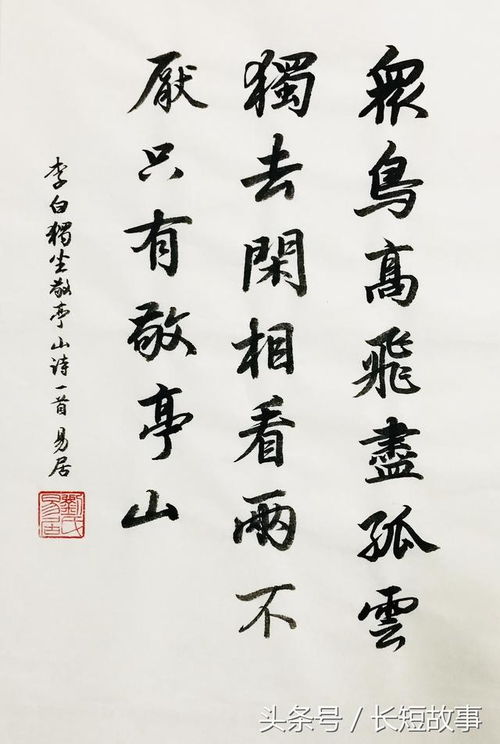 衆鳥高飛盡孤雲
獨去閑相看兩不
厭只有敬亭山
李白獨坐敬亭山诗一首 易居
劉氏易居
头条号／长短故事